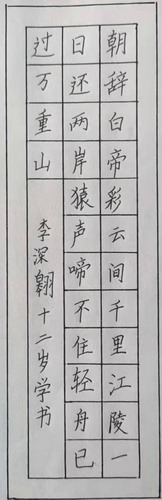 朝辞白帝彩云间千里江陵一
日还两岸猿声啼不住轻舟已
过万重山
李深翱十二岁学书